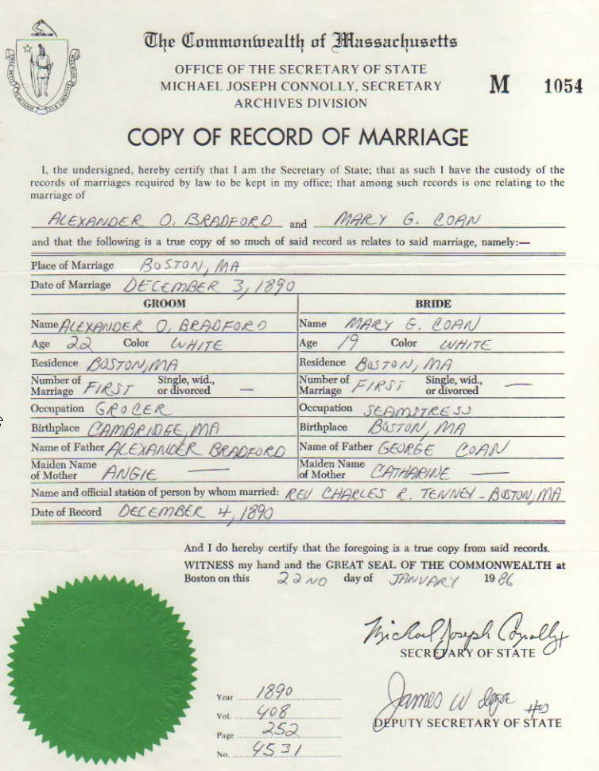 The Commonwealth of Massachusetts
OFFICE OF THE SECRETARY OF STATE
MICHAEL JOSEPH CONNOLLY, SECRETARY
ARCHIVES DIVISION
M 1054
COPY OF RECORD OF MARRIAGE
I, the undersigned, hereby certify that I am the Secretary of State; that as such I have the custody of the
records of marriages required by law to be kept in my office; that among such records is one relating to the
marriage of
ALEXANDER O. BRADFORD and MARY G. COAN
and that the following is a true copy of so much of said record as relates to said marriage, namely:—
Place of Marriage BOSTON, MA
Date of Marriage DECEMBER 3, 1890
GROOM BRIDE
Name ALEXANDER O. BRADFORD Name MARY G. COAN
Age 22 Color WHITE Age 19 Color WHITE
Residence BOSTON, MA Residence BOSTON, MA
Number of Marriage FIRST Single, wid., or divorced — Number of Marriage FIRST Single, wid., or divorced —
Occupation GROCER Occupation SEAMSTRESS
Birthplace CAMBRIDGE, MA Birthplace BOSTON, MA
Name of Father ALEXANDER BRADFORD Name of Father GEORGE COAN
Maiden Name of Mother ANGIE — Maiden Name of Mother CATHARINE —
Name and official station of person by whom married: REV CHARLES R. TENNEY - BOSTON, MA
Date of Record DECEMBER 4, 1890
And I do hereby certify that the foregoing is a true copy from said records.
WITNESS my hand and the GREAT SEAL OF THE COMMONWEALTH at
Boston on this 22ND day of JANUARY 1986
Michael Joseph Connolly
SECRETARY OF STATE
James W
DEPUTY SECRETARY OF STATE
Year 1890
Vol. 408
Page 252
No. 4531